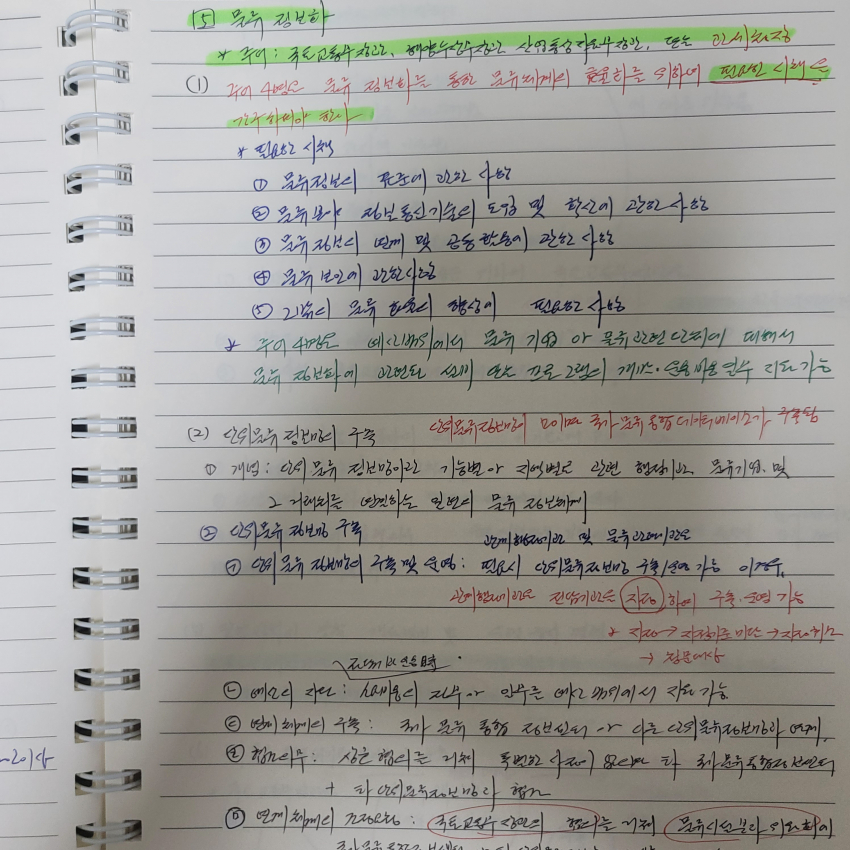 ⑤ 물류 정보화
* 주어 : 국토교통부장관, 해양수산부장관, 산업통상자원부장관, 또는 관세청장
(1) 주어 4명은 물류 정보화를 통한 물류체계의 효율화를 위하여 필요한 시책을
강구하여야 한다.
* 필요한 시책
① 물류정보의 표준에 관한 사항
② 물류분야 정보통신기술의 도입 및 확산에 관한 사항
③ 물류정보의 연계 및 공동활용에 관한 사항
④ 물류보안에 관한 사항
⑤ 그밖의 물류 효율의 향상에 필요한 사항
* 주어 4명은 예산범위에서 물류기업 or 물류관련단체에 대해서
물류 정보화에 관련된 설비 또는 프로그램의 개발·운용비용 일부 지원 가능
(2) 단위물류정보망의 구축 단위물류정보망이 모이면 국가물류통합데이터베이스가 구축됨
① 개념 : 단위물류정보망이란 기능별 or 지역별로 관련 행정기관 물류기업 및
그 거래처를 연결하는 일련의 물류 정보체계
② 단위물류정보망 구축
관계행정기관 및 물류관련기관은
㉠ 단위물류정보망의 구축 및 운영 : 필요시 단위물류정보망 구축/운영 가능 이경우,
관계행정기관은 전담기관을 지정하여 구축·운영 가능
* 지정 → 지정기준미달 → 지정취소
→ 청문대상
㉡ 예산의 지원 : 소요비용의 전부 or 일부를 예산범위에서 지원가능
㉢ 연계체계의 구축 : 국가물류통합정보센터 or 다른 단위물류정보망과 연계,
㉣ 협조의무 : 상호 협의를 거쳐 특별한 사정이 없으면 타 국가물류통합정보센터
+ 타 단위물류정보망과 협조
㉤ 연계체계의 조정요청 : 국토교통부장관의 협의를 거쳐 물류시설분과위원회의